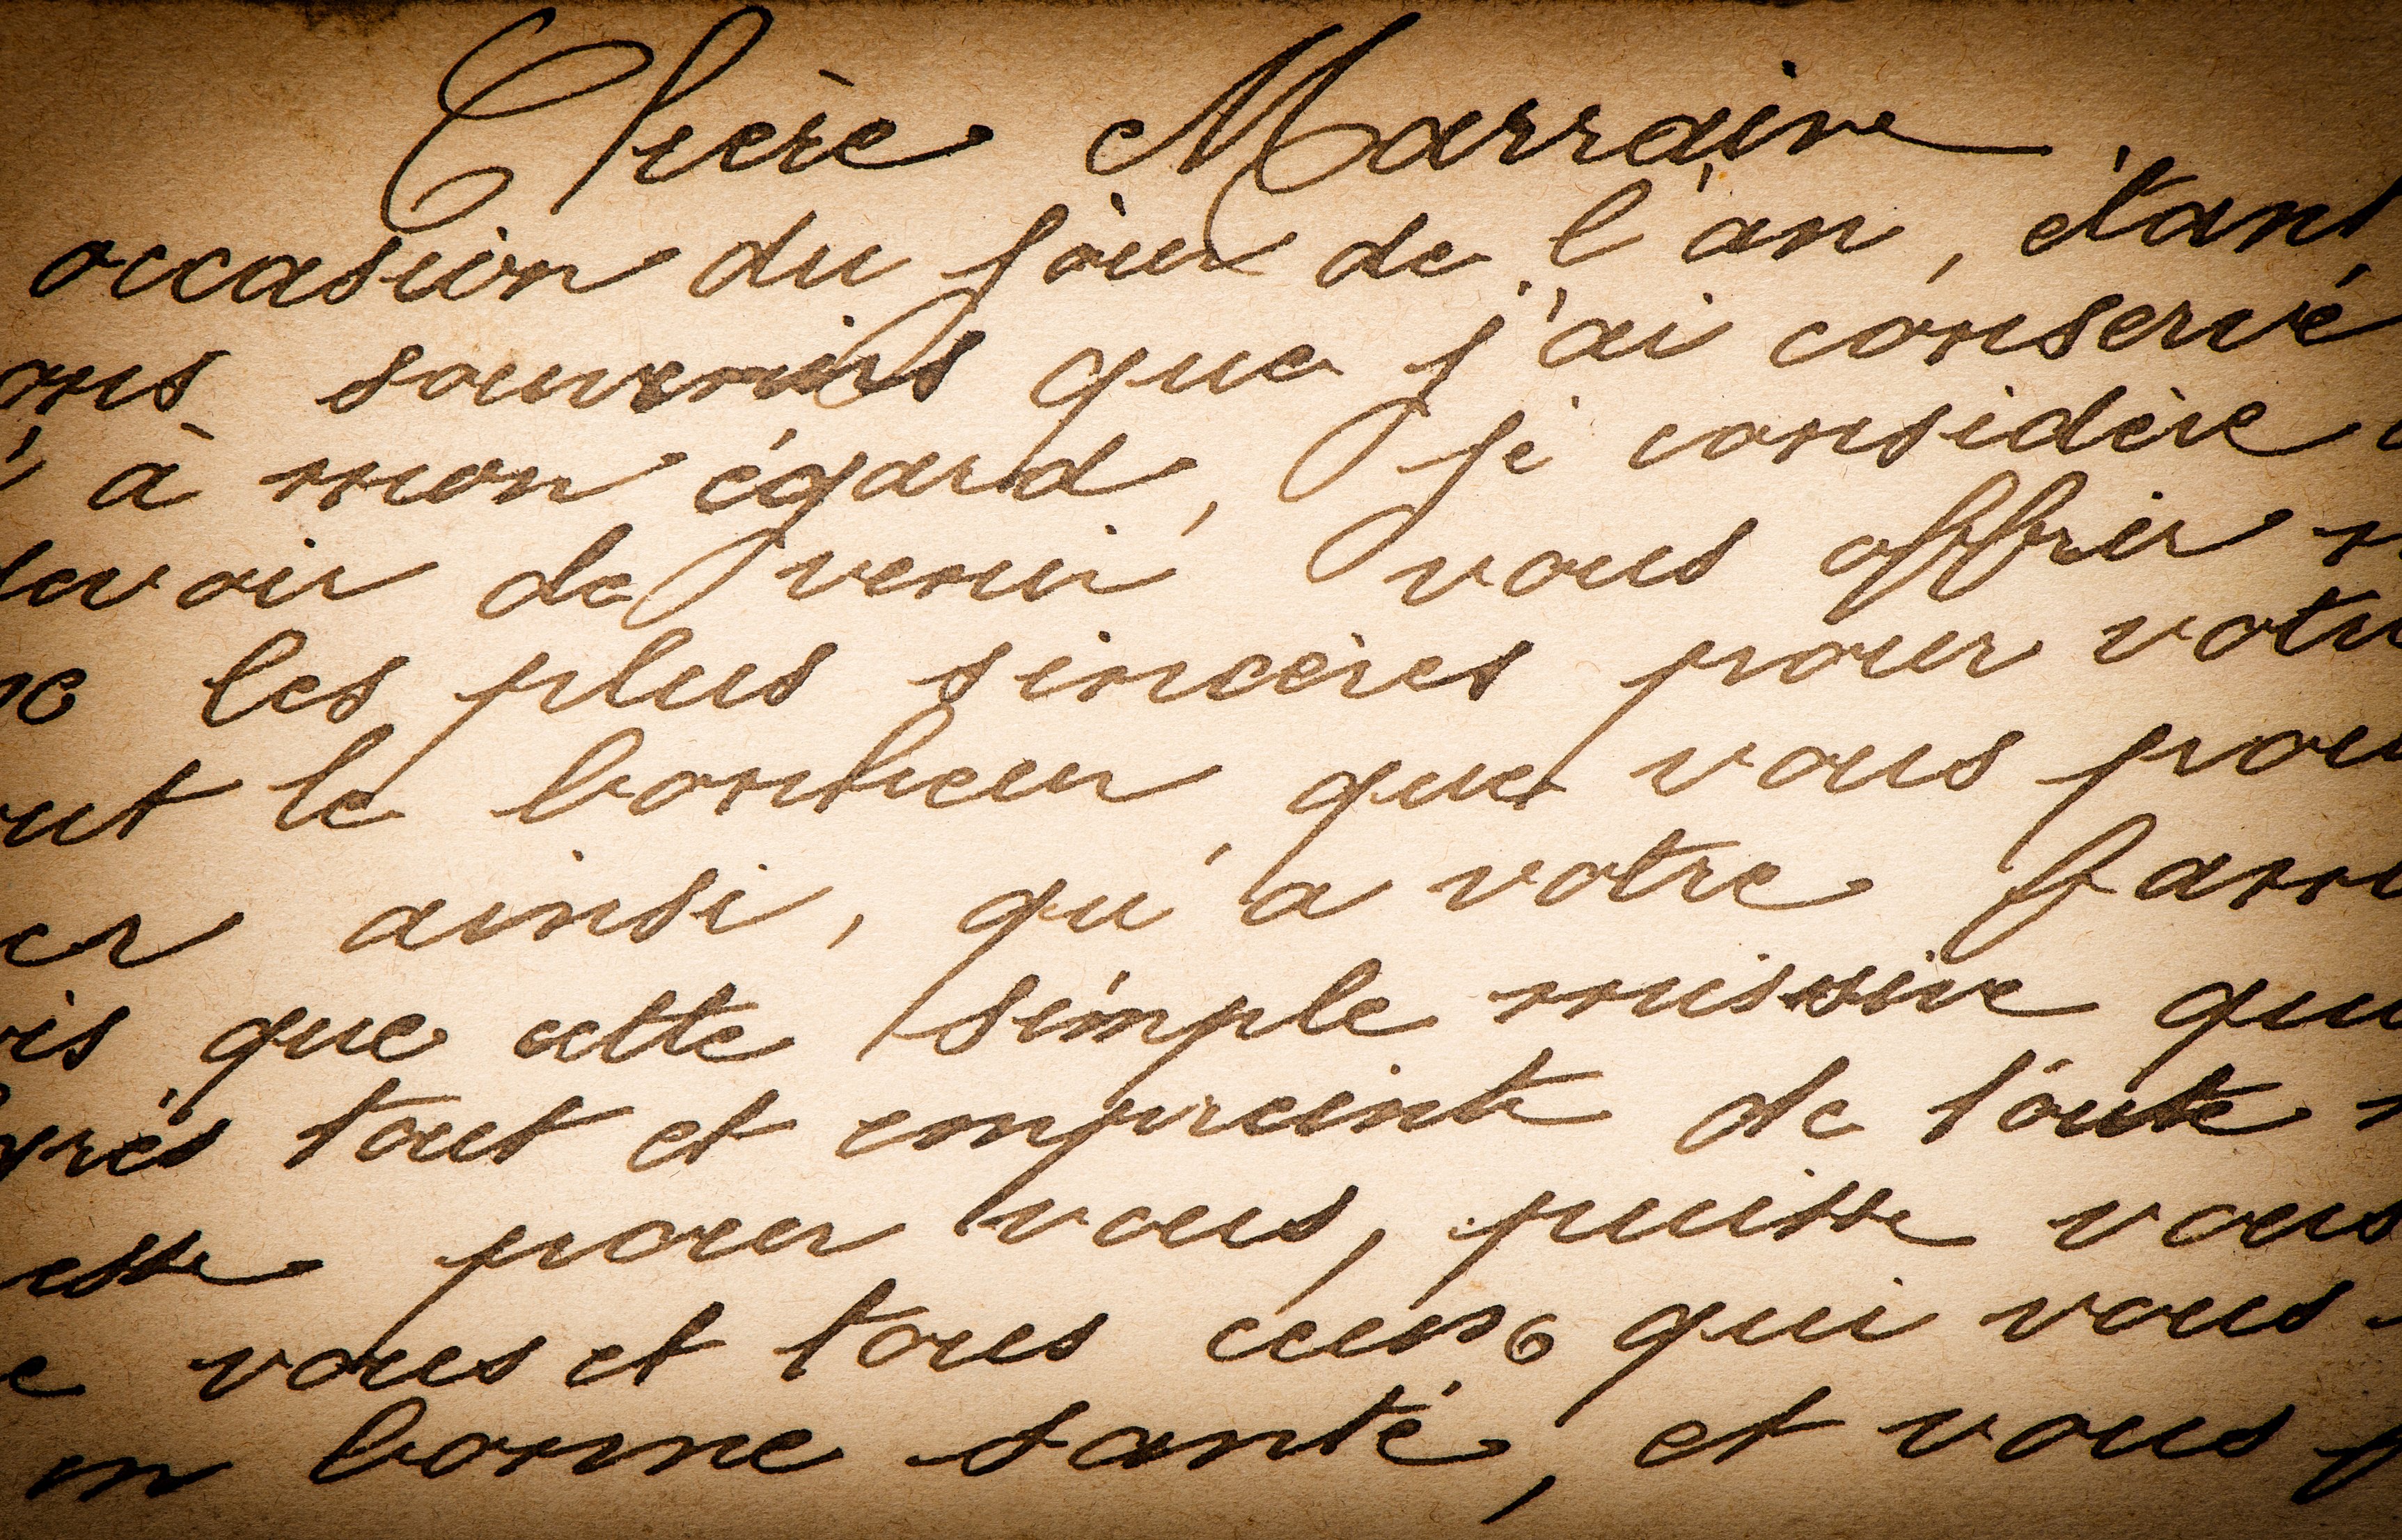 Chère Marraine
occasion du jour de l'an, étant
ons souvenirs que j'ai conservé
à mon égard, je considère
devoir de venir vous offrir
les plus sincères pour votre
out le bonheur que vous pou
er ainsi, qu'a votre fami
is que cette simple missive qui
près tout et empreinte de toute
esse pour vous, puisse vous
e vous et tous ceux qui vous
en bonne santé, et vous p